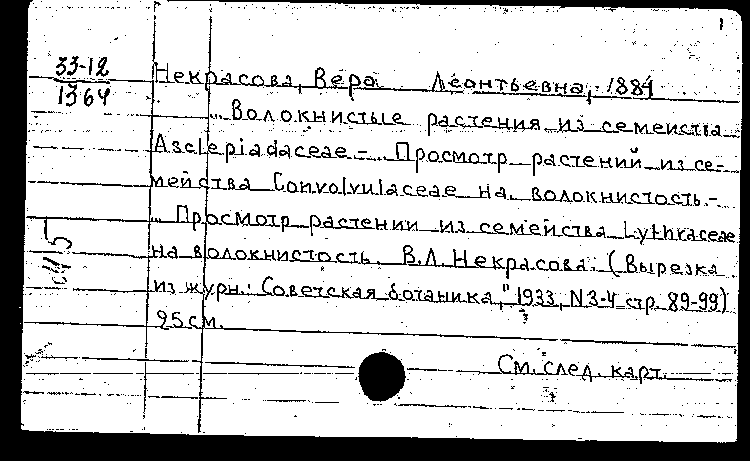 1
33-12
1364
Некрасова, Вера Леонтьевна, 1884
... Волокнистые растения из семейства
Asclepiadaceae. - ... Просмотр растений из се-
мейства Convolvulaceae на волокнистость. -
... Просмотр растений из семейства Lythraceae
на волокнистость. В.Л. Некрасова. (Вырезка
из журн.: Советская ботаника," 1933, N3-4 стр. 89-99)
25 см.
См. след. карт.